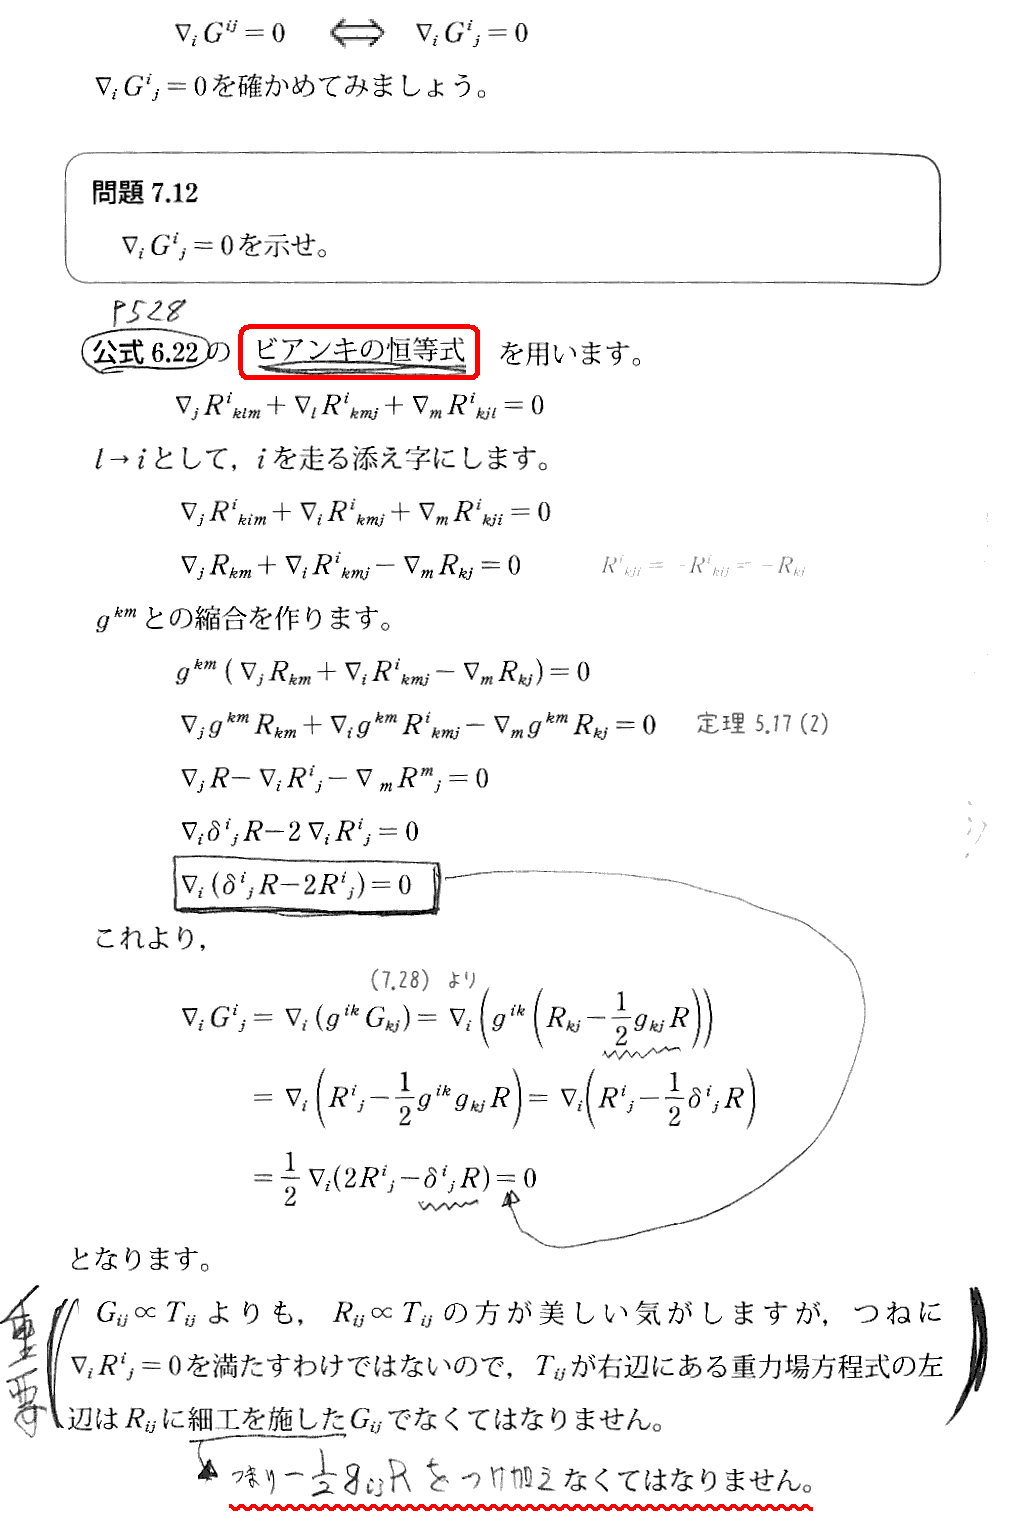 ∇ᵢ Gⁱʲ = 0 ⟺ ∇ᵢ Gⁱⱼ = 0
∇ᵢ Gⁱⱼ = 0を確かめてみましょう。
問題 7.12
∇ᵢ Gⁱⱼ = 0を示せ。
P528
公式 6.22 の ビアンキの恒等式 を用います。
∇ⱼ Rⁱₖₗₘ + ∇ₗ Rⁱₖₘⱼ + ∇ₘ Rⁱₖⱼₗ = 0
l → i として，i を走る添え字にします。
∇ⱼ Rⁱₖᵢₘ + ∇ᵢ Rⁱₖₘⱼ + ∇ₘ Rⁱₖⱼᵢ = 0
∇ⱼ Rₖₘ + ∇ᵢ Rⁱₖₘⱼ − ∇ₘ Rₖⱼ = 0 Rⁱₖⱼᵢ = −Rⁱₖᵢⱼ = −Rₖⱼ
gᵏᵐ との縮合を作ります。
gᵏᵐ ( ∇ⱼ Rₖₘ + ∇ᵢ Rⁱₖₘⱼ − ∇ₘ Rₖⱼ ) = 0
∇ⱼ gᵏᵐ Rₖₘ + ∇ᵢ gᵏᵐ Rⁱₖₘⱼ − ∇ₘ gᵏᵐ Rₖⱼ = 0 定理 5.17 (2)
∇ⱼ R − ∇ᵢ Rⁱⱼ − ∇ₘ Rᵐⱼ = 0
∇ᵢ δⁱⱼ R − 2 ∇ᵢ Rⁱⱼ = 0
∇ᵢ (δⁱⱼ R − 2Rⁱⱼ) = 0
これより，
(7.28) より
∇ᵢ Gⁱⱼ = ∇ᵢ (gⁱᵏ Gₖⱼ) = ∇ᵢ (gⁱᵏ (Rₖⱼ − 1/2 gₖⱼ R))
= ∇ᵢ (Rⁱⱼ − 1/2 gⁱᵏ gₖⱼ R) = ∇ᵢ (Rⁱⱼ − 1/2 δⁱⱼ R)
= 1/2 ∇ᵢ (2Rⁱⱼ − δⁱⱼ R) = 0
となります。
重要
Gᵢⱼ ∝ Tᵢⱼ よりも，Rᵢⱼ ∝ Tᵢⱼ の方が美しい気がしますが，つねに
∇ᵢ Rⁱⱼ = 0を満たすわけではないので，Tᵢⱼが右辺にある重力場方程式の左
辺は Rᵢⱼ に細工を施した Gᵢⱼ でなくてはなりません。
つまり −1/2 gᵢⱼ R をつけ加えなくてはなりません。